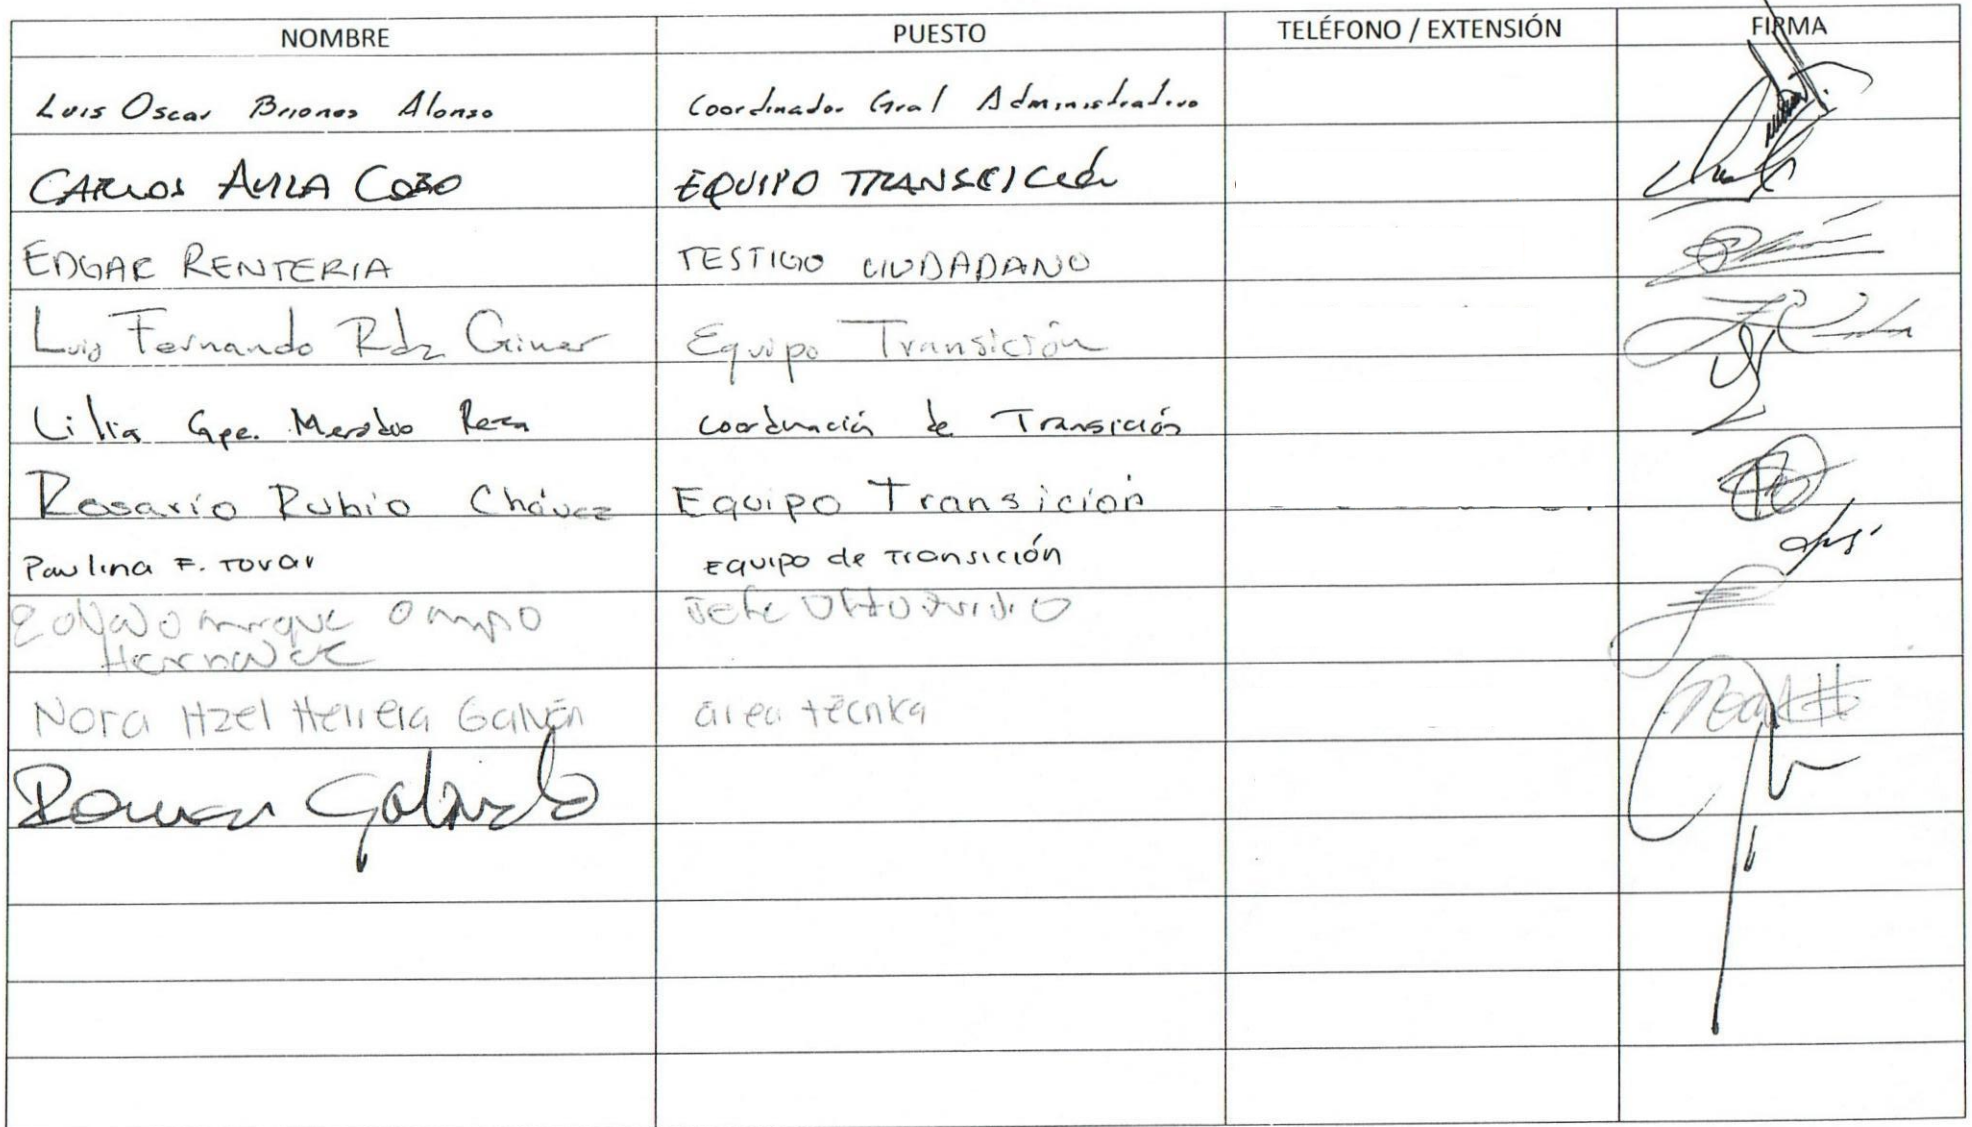 NOMBRE PUESTO TELÉFONO / EXTENSIÓN FIRMA
Luis Oscar Briones Alonso Coordinador Gral Administrativo
CARLOS AVILA COBO EQUIPO TRANSCICIÓN
EDGAR RENTERIA TESTIGO CIUDADANO
Luis Fernando Rdz Giner Equipo Transición
Lilia Gpe. Coordinación de Transición
Rosario Rubio Chávez Equipo Transición
Paulina F. Tovar Equipo de Transición
Ocampo Jefe
Hernandez
Nora Itzel Herrera Galván área técnica
Galindo